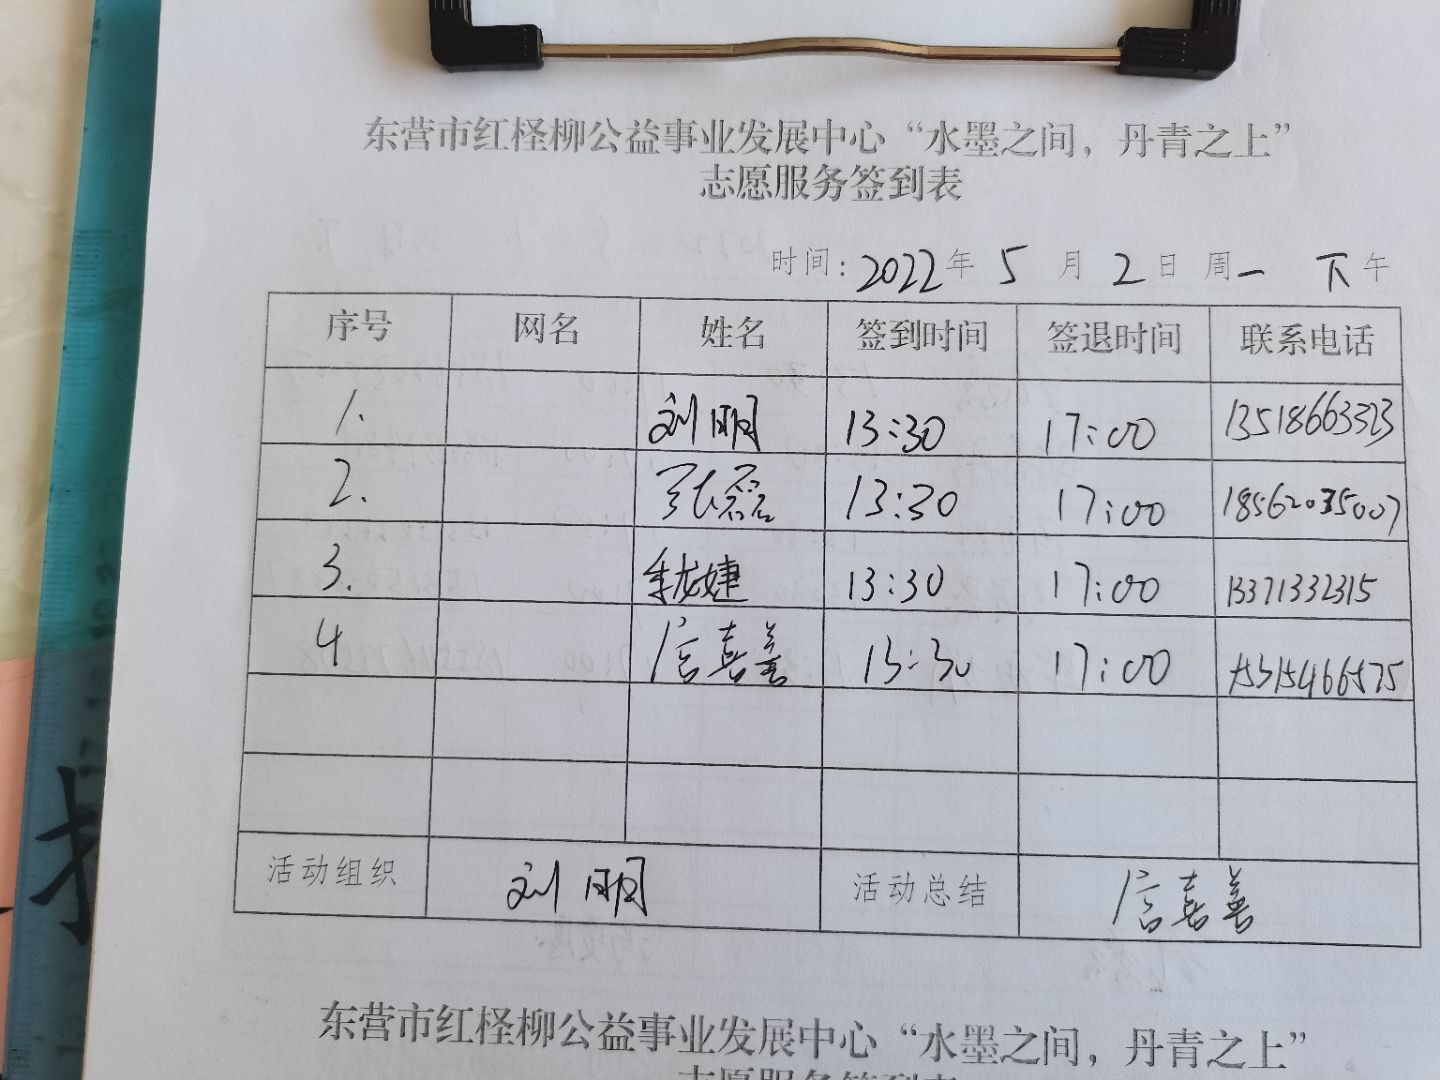 东营市红柽柳公益事业发展中心“水墨之间，丹青之上”
志愿服务签到表
时间：2022年 5 月 2 日 周一 下午
序号 网名 姓名 签到时间 签退时间 联系电话
1. 刘明 13:30 17:00 13518663323
2. 张磊 13:30 17:00 18562035007
3. 婕 13:30 17:00 13371332315
4 信嘉善 13:30 17:00 15315466575
活动组织 刘明 活动总结 信嘉善
东营市红柽柳公益事业发展中心“水墨之间，丹青之上”
志愿服务签到表